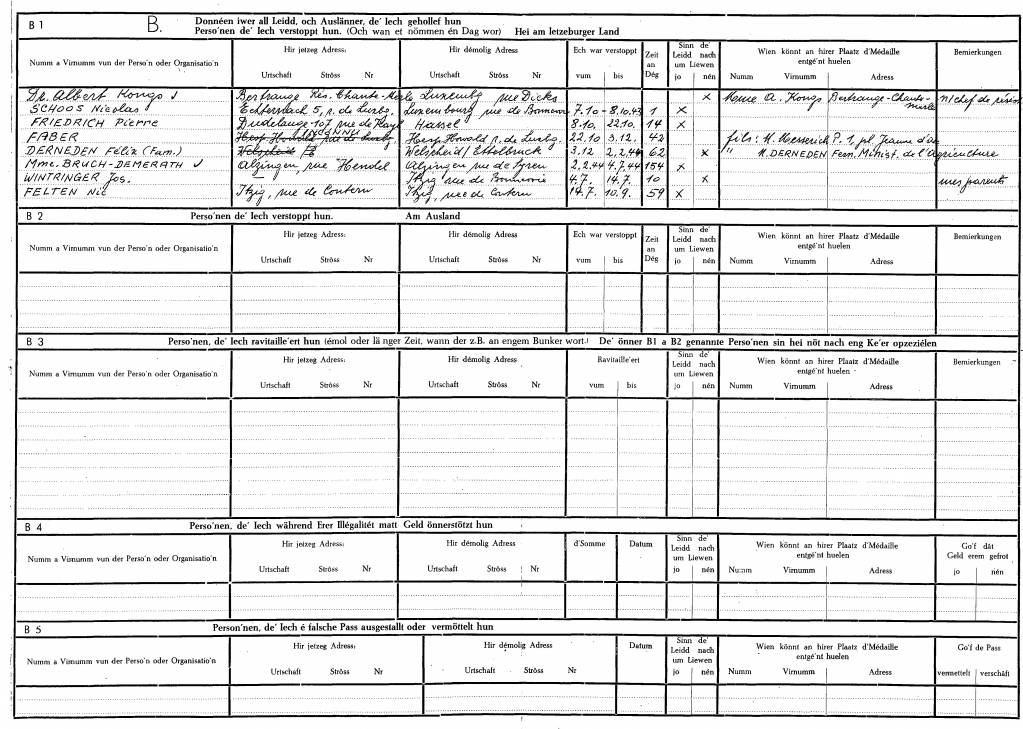 B 1 B. Donnéen iwer all Leidd, och Auslänner, de' Iech gehollef hun
Perso'nen de' Iech verstoppt hun. (Och wan et nömmen én Dag wor) Hei am letzeburger Land
Numm a Virnumm vun der Perso'n oder Organisatio'n
Hir jetzeg Adress:
Urtschaft Ströss Nr
Hir démolig Adress
Urtschaft Ströss Nr
Ech war verstoppt
vum bis
Zeit an Dég
Sinn de' Leidd nach um Liewen
jo nén
Wien könnt an hirer Plaatz d'Médaille entgé'nt huelen
Numm Virnumm Adress
Bemierkungen
Dr. Albert Kongs Bertrange Rés. Chante-Merle Luxembg rue Dicks x Mme A. Kongs Bertrange-Chante-Merle n/chef de
SCHOOS Nicolas Echternach 5, r. de Luxbg. Luxembourg rue de Bonnevoie 7.10 - 8.10.43 1 x
FRIEDRICH Pierre Dudelange 107 rue de Kayl Hassel 8.10. 22.10. 14 x
FABER INCONNU Hesp. Howald r. de Luxbg 22.10 3.12. 42 fils: M. P. 1, pl. Jeanne d'Arc
DERNEDEN Félix (Fam.) Welscheid / Ettelbruck 3.12 2.2.44 62 x " M. DERNEDEN Fem. Minist. de l'Agriculture
Mme. BRUCH-DEMERATH Alzingen, rue Hendel Alzingen rue de Syren 2.2.44 4.7.44 154 x
WINTRINGER Jos. — Itzig rue de Bonnevoie 4.7. 14.7. 10 x mes parents
FELTEN Nic Itzig, rue de Contern Itzig, rue de Contern 14.7. 10.9. 59 x
B 2 Perso'nen de' Iech verstoppt hun. Am Ausland
Numm a Virnumm vun der Perso'n oder Organisatio'n
Hir jetzeg Adress:
Urtschaft Ströss Nr
Hir démolig Adress
Urtschaft Ströss Nr
Ech war verstoppt
vum bis
Zeit an Dég
Sinn de' Leidd nach um Liewen
jo nén
Wien könnt an hirer Plaatz d'Médaille entgé'nt huelen
Numm Virnumm Adress
Bemierkungen
B 3 Perso'nen, de' Iech ravitaille'ert hun (émol oder länger Zeit, wann der z.B. an engem Bunker wort.) De' önner B1 a B2 genannte Perso'nen sin hei nöt nach eng Ke'er opzeziélen
Numm a Virnumm vun der Perso'n oder Organisatio'n
Hir jetzeg Adress:
Urtschaft Ströss Nr
Hir démolig Adress
Urtschaft Ströss Nr
Ravitaille'ert
vum bis
Sinn de' Leidd nach um Liewen
jo nén
Wien könnt an hirer Plaatz d'Médaille entgé'nt huelen
Numm Virnumm Adress
Bemierkungen
B 4 Perso'nen, de' Iech während Erer Illégalitét matt Geld önnerstötzt hun
Numm a Virnumm vun der Perso'n oder Organisatio'n
Hir jetzeg Adress:
Urtschaft Ströss Nr
Hir démolig Adress
Urtschaft Ströss Nr
d'Somme
Datum
Sinn de' Leidd nach um Liewen
jo nén
Wien könnt an hirer Plaatz d'Médaille entgé'nt huelen
Numm Virnumm Adress
Go'f dât Geld erem gefrot
jo nén
B 5 Person'nen, de' Iech é falsche Pass ausgestallt oder vermöttelt hun
Numm a Virnumm vun der Perso'n oder Organisatio'n
Hir jetzeg Adress:
Urtschaft Ströss Nr
Hir démolig Adress
Urtschaft Ströss Nr
Datum
Sinn de' Leidd nach um Liewen
jo nén
Wien könnt an hirer Plaatz d'Médaille entgé'nt huelen
Numm Virnumm Adress
Go'f de Pass
vermettelt verschâft